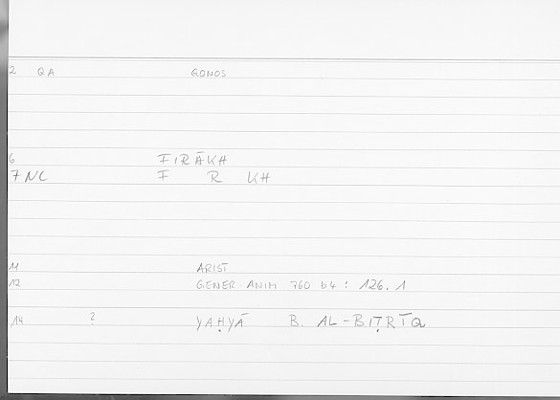 2 QA GONOS
6 FIRĀKH
7 NC F R KH
11 ARIST
12 GENER ANIM 760 b4 : 126.1
14 ? YAḤYĀ B. AL-BIṬRĪQ